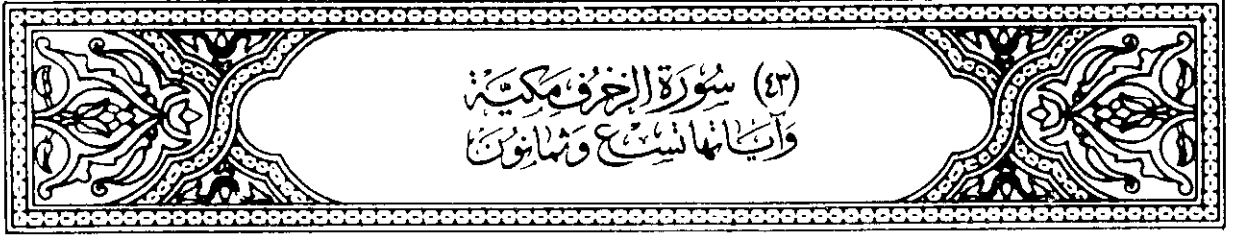 (٤٣) سُورَةُ الزُّخْرُفِ مَكِيَّة
وَآيَاتُهَا تِسْعٌ وَثَمَانُونَ